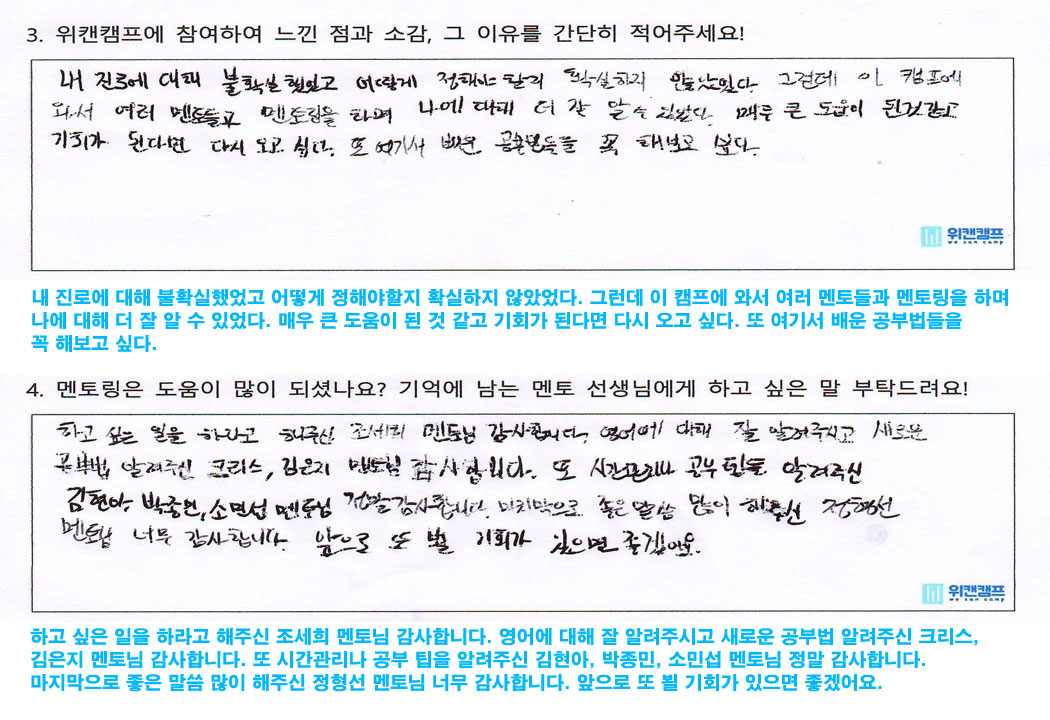 3. 위캔캠프에 참여하여 느낀 점과 소감, 그 이유를 간단히 적어주세요!
내 진로에 대해 불확실했었고 어떻게 정해야 할지 확실하지 않았었다. 그런데 이 캠프에
와서 여러 멘토들과 멘토링을 하며 나에 대해 더 잘 알 수 있었다. 매우 큰 도움이 된것 같고
기회가 된다면 다시 오고 싶다. 또 여기서 배운 공부법들을 꼭 해보고 싶다.
위캔캠프
we can camp
내 진로에 대해 불확실했었고 어떻게 정해야할지 확실하지 않았었다. 그런데 이 캠프에 와서 여러 멘토들과 멘토링을 하며
나에 대해 더 잘 알 수 있었다. 매우 큰 도움이 된 것 같고 기회가 된다면 다시 오고 싶다. 또 여기서 배운 공부법들을
꼭 해보고 싶다.
4. 멘토링은 도움이 많이 되셨나요? 기억에 남는 멘토 선생님에게 하고 싶은 말 부탁드려요!
하고 싶은 일을 하라고 해주신 조세희 멘토님 감사합니다. 영어에 대해 잘 알려주시고 새로운
공부법 알려주신 크리스, 김은지 멘토님 감사합니다. 또 시간관리나 공부 팁을 알려주신
김현아, 박종민, 소민섭 멘토님 정말 감사합니다. 마지막으로 좋은 말씀 많이 해주신 정형선
멘토님 너무 감사합니다. 앞으로 또 뵐 기회가 있으면 좋겠어요.
위캔캠프
we can camp
하고 싶은 일을 하라고 해주신 조세희 멘토님 감사합니다. 영어에 대해 잘 알려주시고 새로운 공부법 알려주신 크리스,
김은지 멘토님 감사합니다. 또 시간관리나 공부 팁을 알려주신 김현아, 박종민, 소민섭 멘토님 정말 감사합니다.
마지막으로 좋은 말씀 많이 해주신 정형선 멘토님 너무 감사합니다. 앞으로 또 뵐 기회가 있으면 좋겠어요.